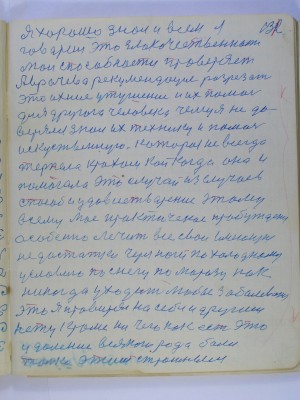 Я хорошо знаю и всем я
говорил это злокачественности
мои способности проверять
Я врачева рекумендуюе разрезат
это ихние утушение и их помаг
для другого человека чему я не до-
веряю знаю их технику и помаг
искуственную. Которая не всегда
терпела крахом Кой когда она и
помогала это случай из случаев
способ и удовиствварение этому
всему мое практическое пробуждени
особенно лечит все свои
недостатки через ногу по холодному
условию по снегу по морозу как
никогда уходят любые заболевания
это я проверял на себе и другим
нету кроме ни чего как есть это
удоление всякого рода боли
этим